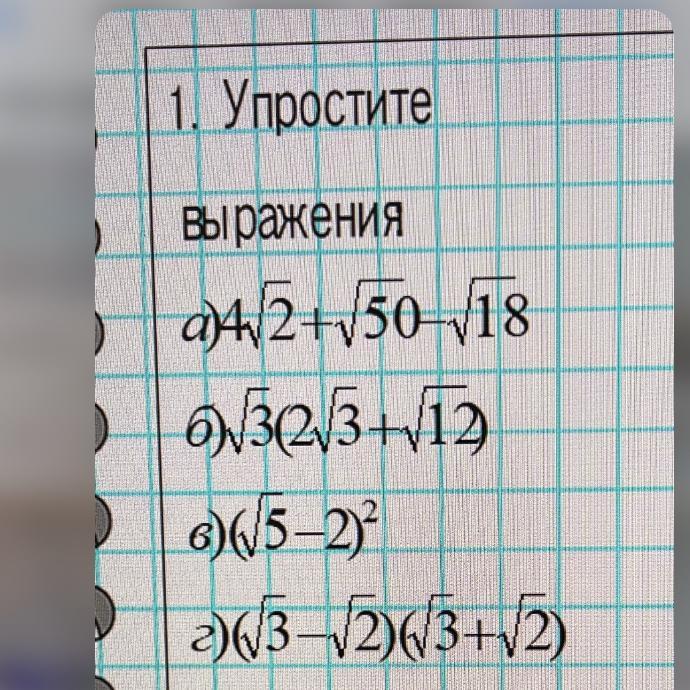 1. Упростите
выражения
а)4√2+√50–√18
б)√3(2√3+√12)
в)(√5–2)²
г)(√3–√2)(√3+√2)